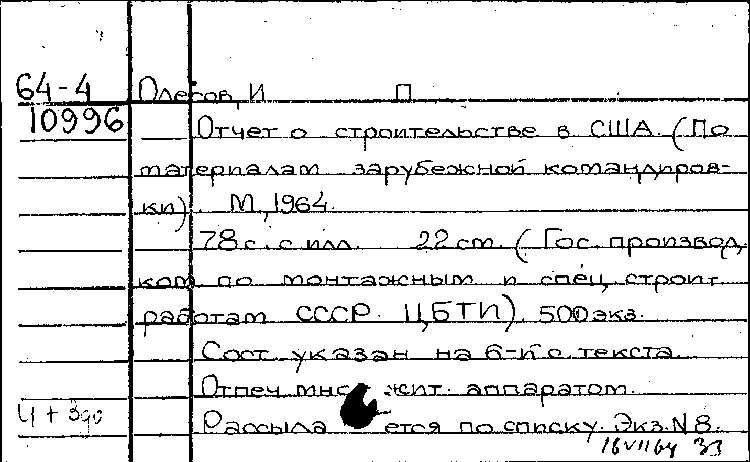 64-4 Олесов, И П
10996 Отчет о строительстве в США (По
материалам зарубежной командиров-
ки). М., 1964.
78 с. с илл. 22 см. (Гос. производ.
ком. по монтажным и спец. строит.
работам СССР. ЦБТИ). 500 экз.
Сост. указан на 6-й с. текста.
Отпеч. мно жит. аппаратом.
Рассыла ется по списку. Экз. N 8.